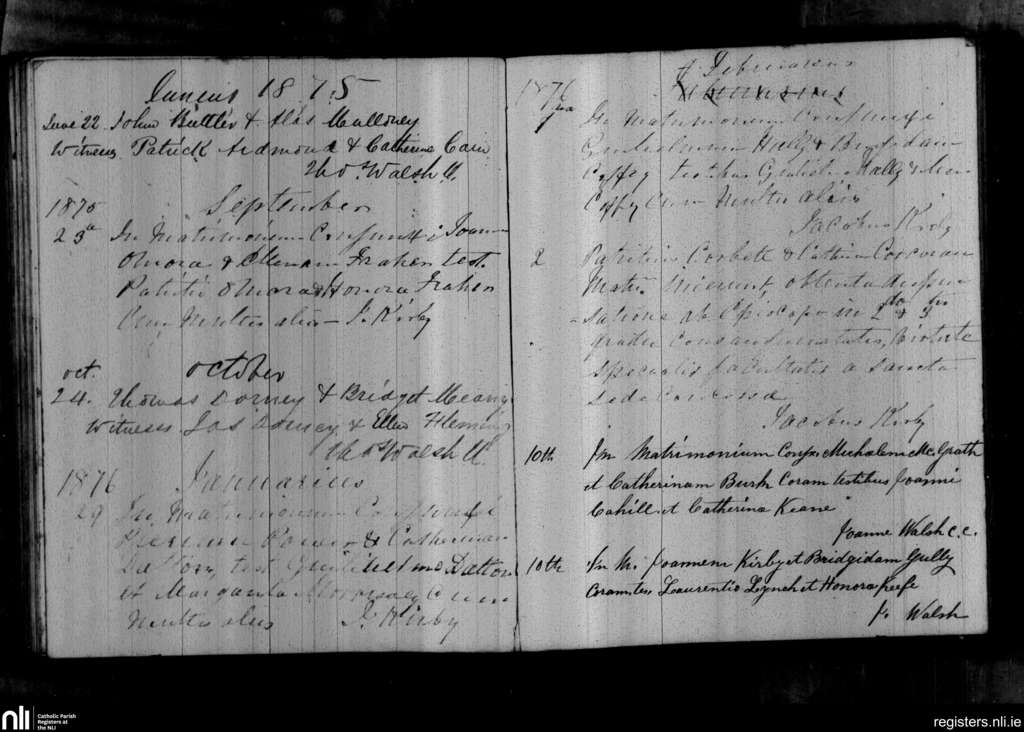 Junius 1875
June 22. John Buttler & Alis Mulloney
Witness Patrick Ardmond & Catherine Cain
Tho. Walsh
1875 September
23 In Matrimonium Conjunxi Joann
Omora & Ellenam Fraher test.
Patritio Omora & Honora Fraher
Cum Multis aliis J. Kirby
oct. october
24. Thomas Dorney & Bridget Meany
Witness Jas Dorney & Ellen Fleming
Tho Walsh
1876 Januarius
29 In Matrimonium Conjunxi
Power & Catherinam
Dalton, test Dalton
et Margarita cum
Multis aliis J. Kirby
1876 Februarius
In Matrimonium Conjunxi
Hally &
Coffey testibus Hally &
Coffey Cum Multis aliis
Jacobus Kirby
2 Patritius Corbett & Catherina Corcoran
Matr. inierunt, obtenta dispen
satione ab Episcopo in 2do & 3tio
gradu consanguinitatis, virtute
specialis facultatis a Sancta
Sede
Jacobus Kirby
10th In Matrimonium Conjx. Michalem Mc.Grath
et Catherinam Burk Coram testibus Joanni
Cahill et Catherina Keane
Joanne Walsh C.C.
10th In M. Joannem Kirby et Bridgidam Gully
Coram tes Laurentio Lynch et Honora Keefe
J. Walsh
nli Catholic Parish
Registers at
the NLI
registers.nli.ie